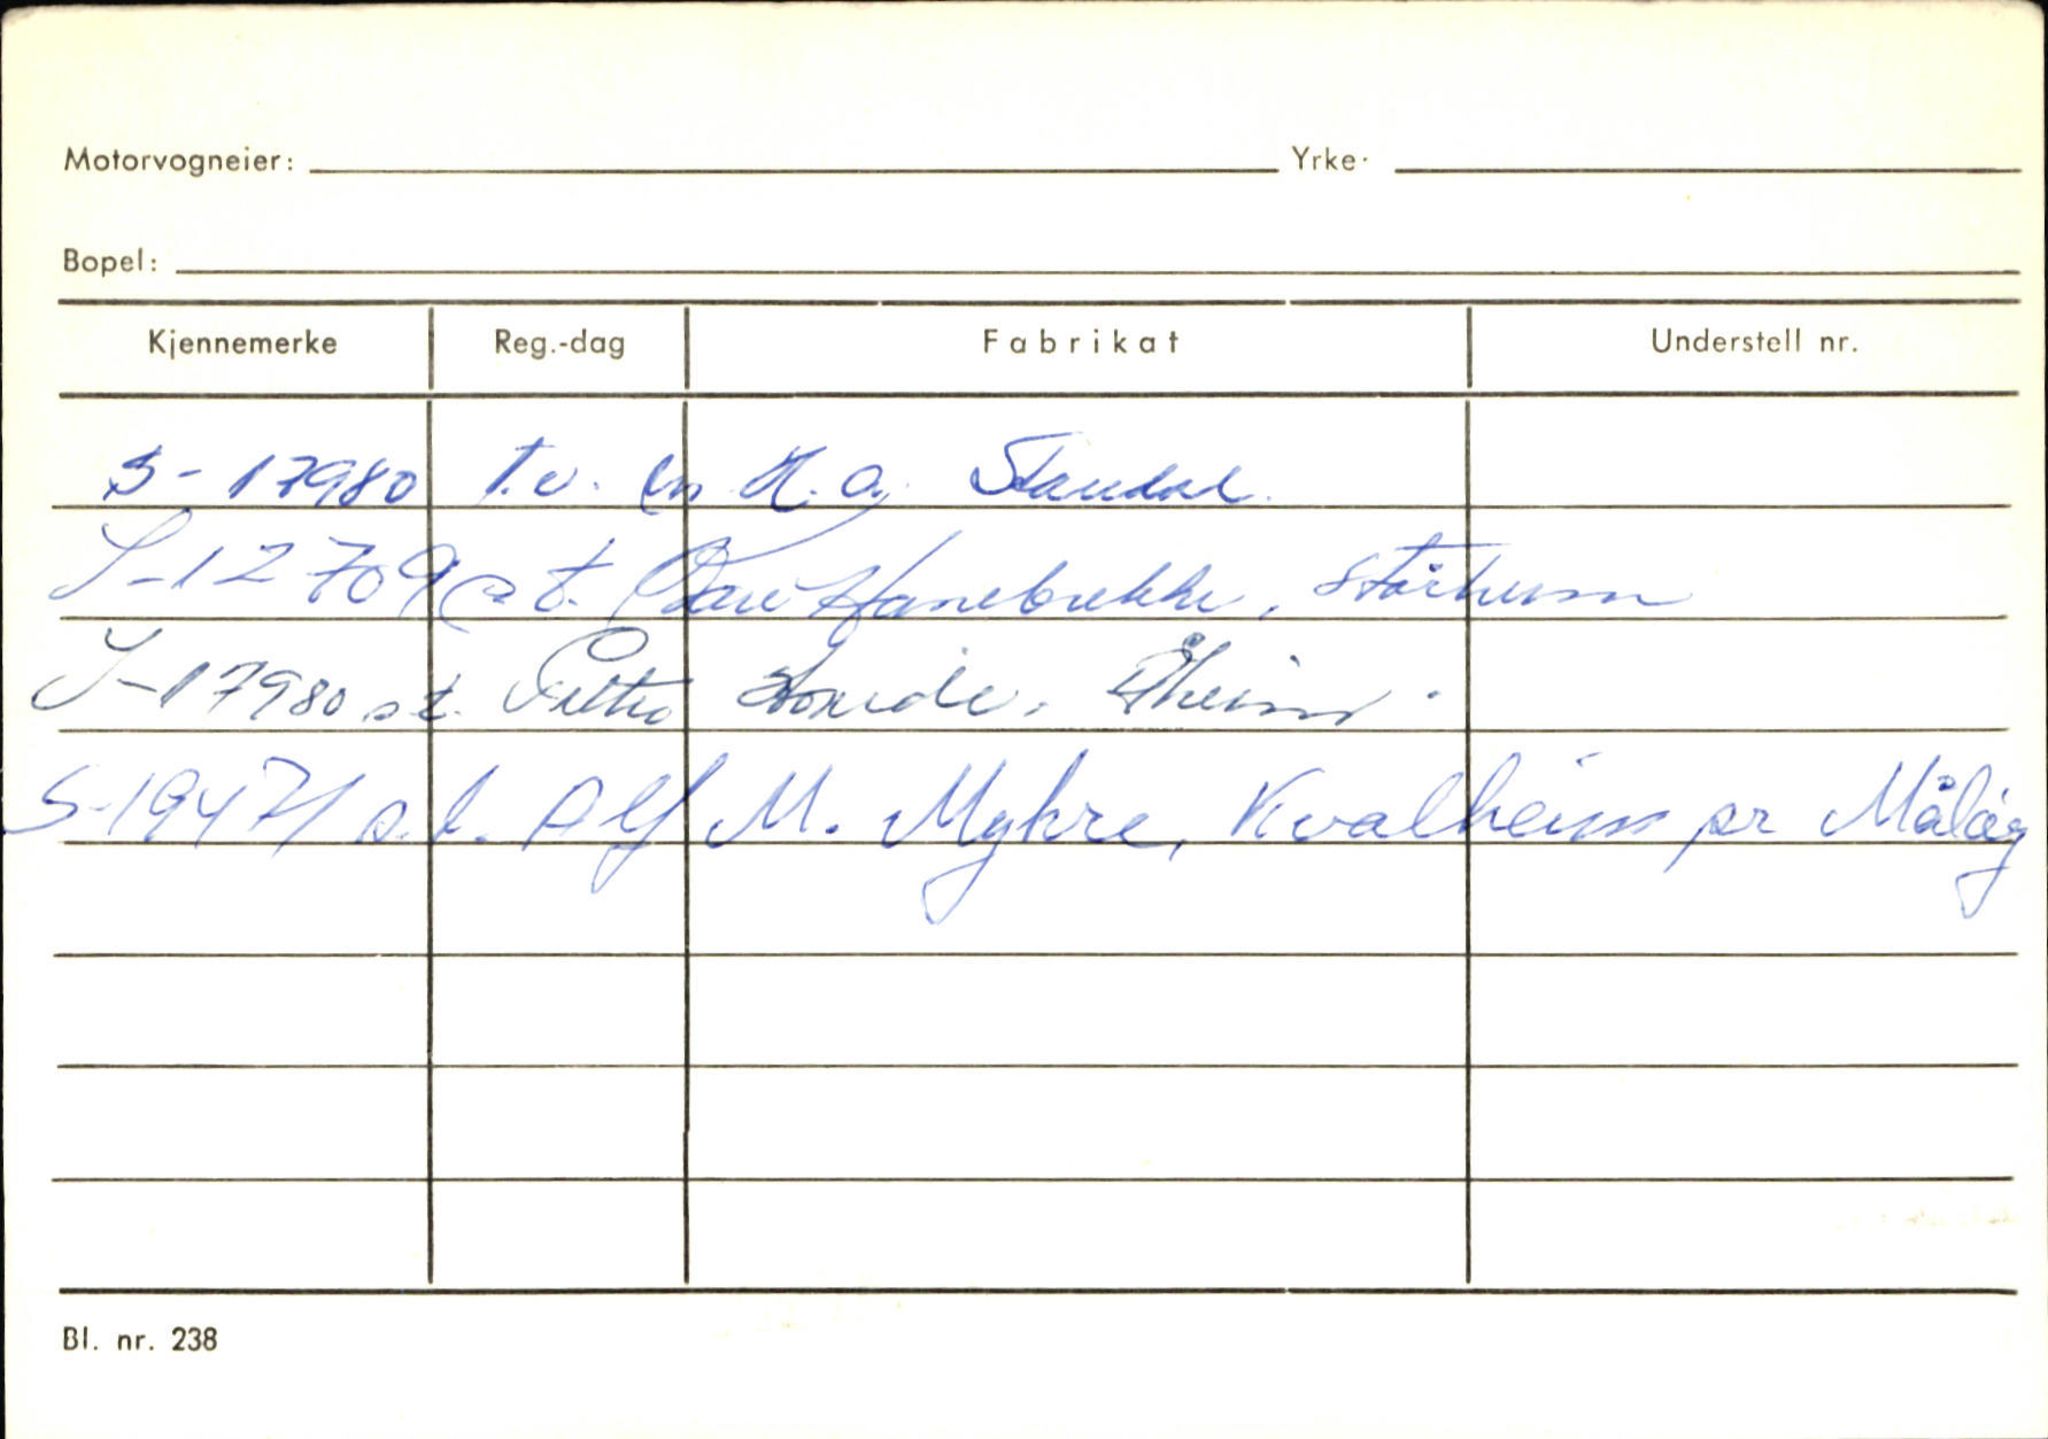 Motorvogneier: Yrke.
Bopel:
Kjennemerke Reg.-dag Fabrikat Understell nr.
S-17980 T.v. H.A. Standal.
S-12709 s.t. Hanebrekke, Stårheim
S-17980 s.t. Petter Åheim.
S-19471 s.t. Alf M. Myhre, Kvalheim pr Måløy
Bl. nr. 238